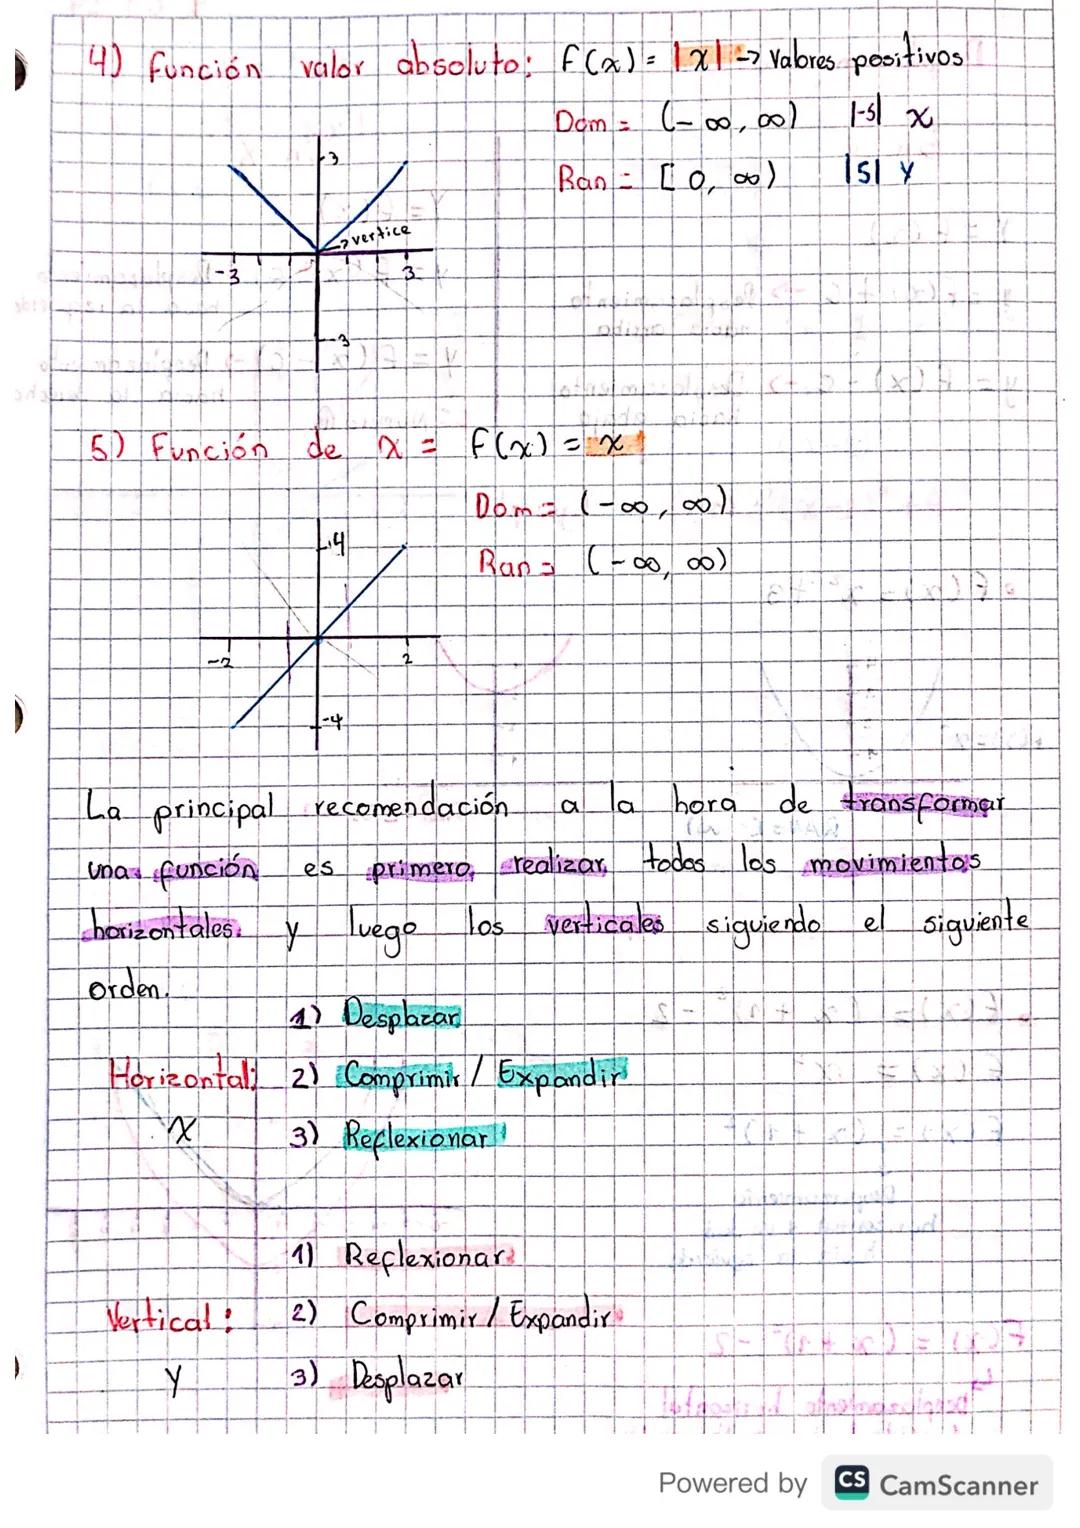 4) función valor absoluto: f(x) = |x| -> Valores positivos
Dom = (-∞, ∞) |-5| x
Ran = [0, ∞) |5| y
3
-> vertice
-3 3
-3
5) Función de x = f(x) = x
Dom = (-∞, ∞)
Ran = (-∞, ∞)
4
-2 2
-4
La principal recomendación a la hora de transformar
una función es primero realizar todos los movimientos
horizontales. y luego los verticales siguiendo el siguiente
orden.
1) Desplazar
Horizontal: 2) Comprimir / Expandir
x 3) Reflexionar
1) Reflexionar
Vertical: 2) Comprimir / Expandir
y 3) Desplazar
Powered by CS CamScanner